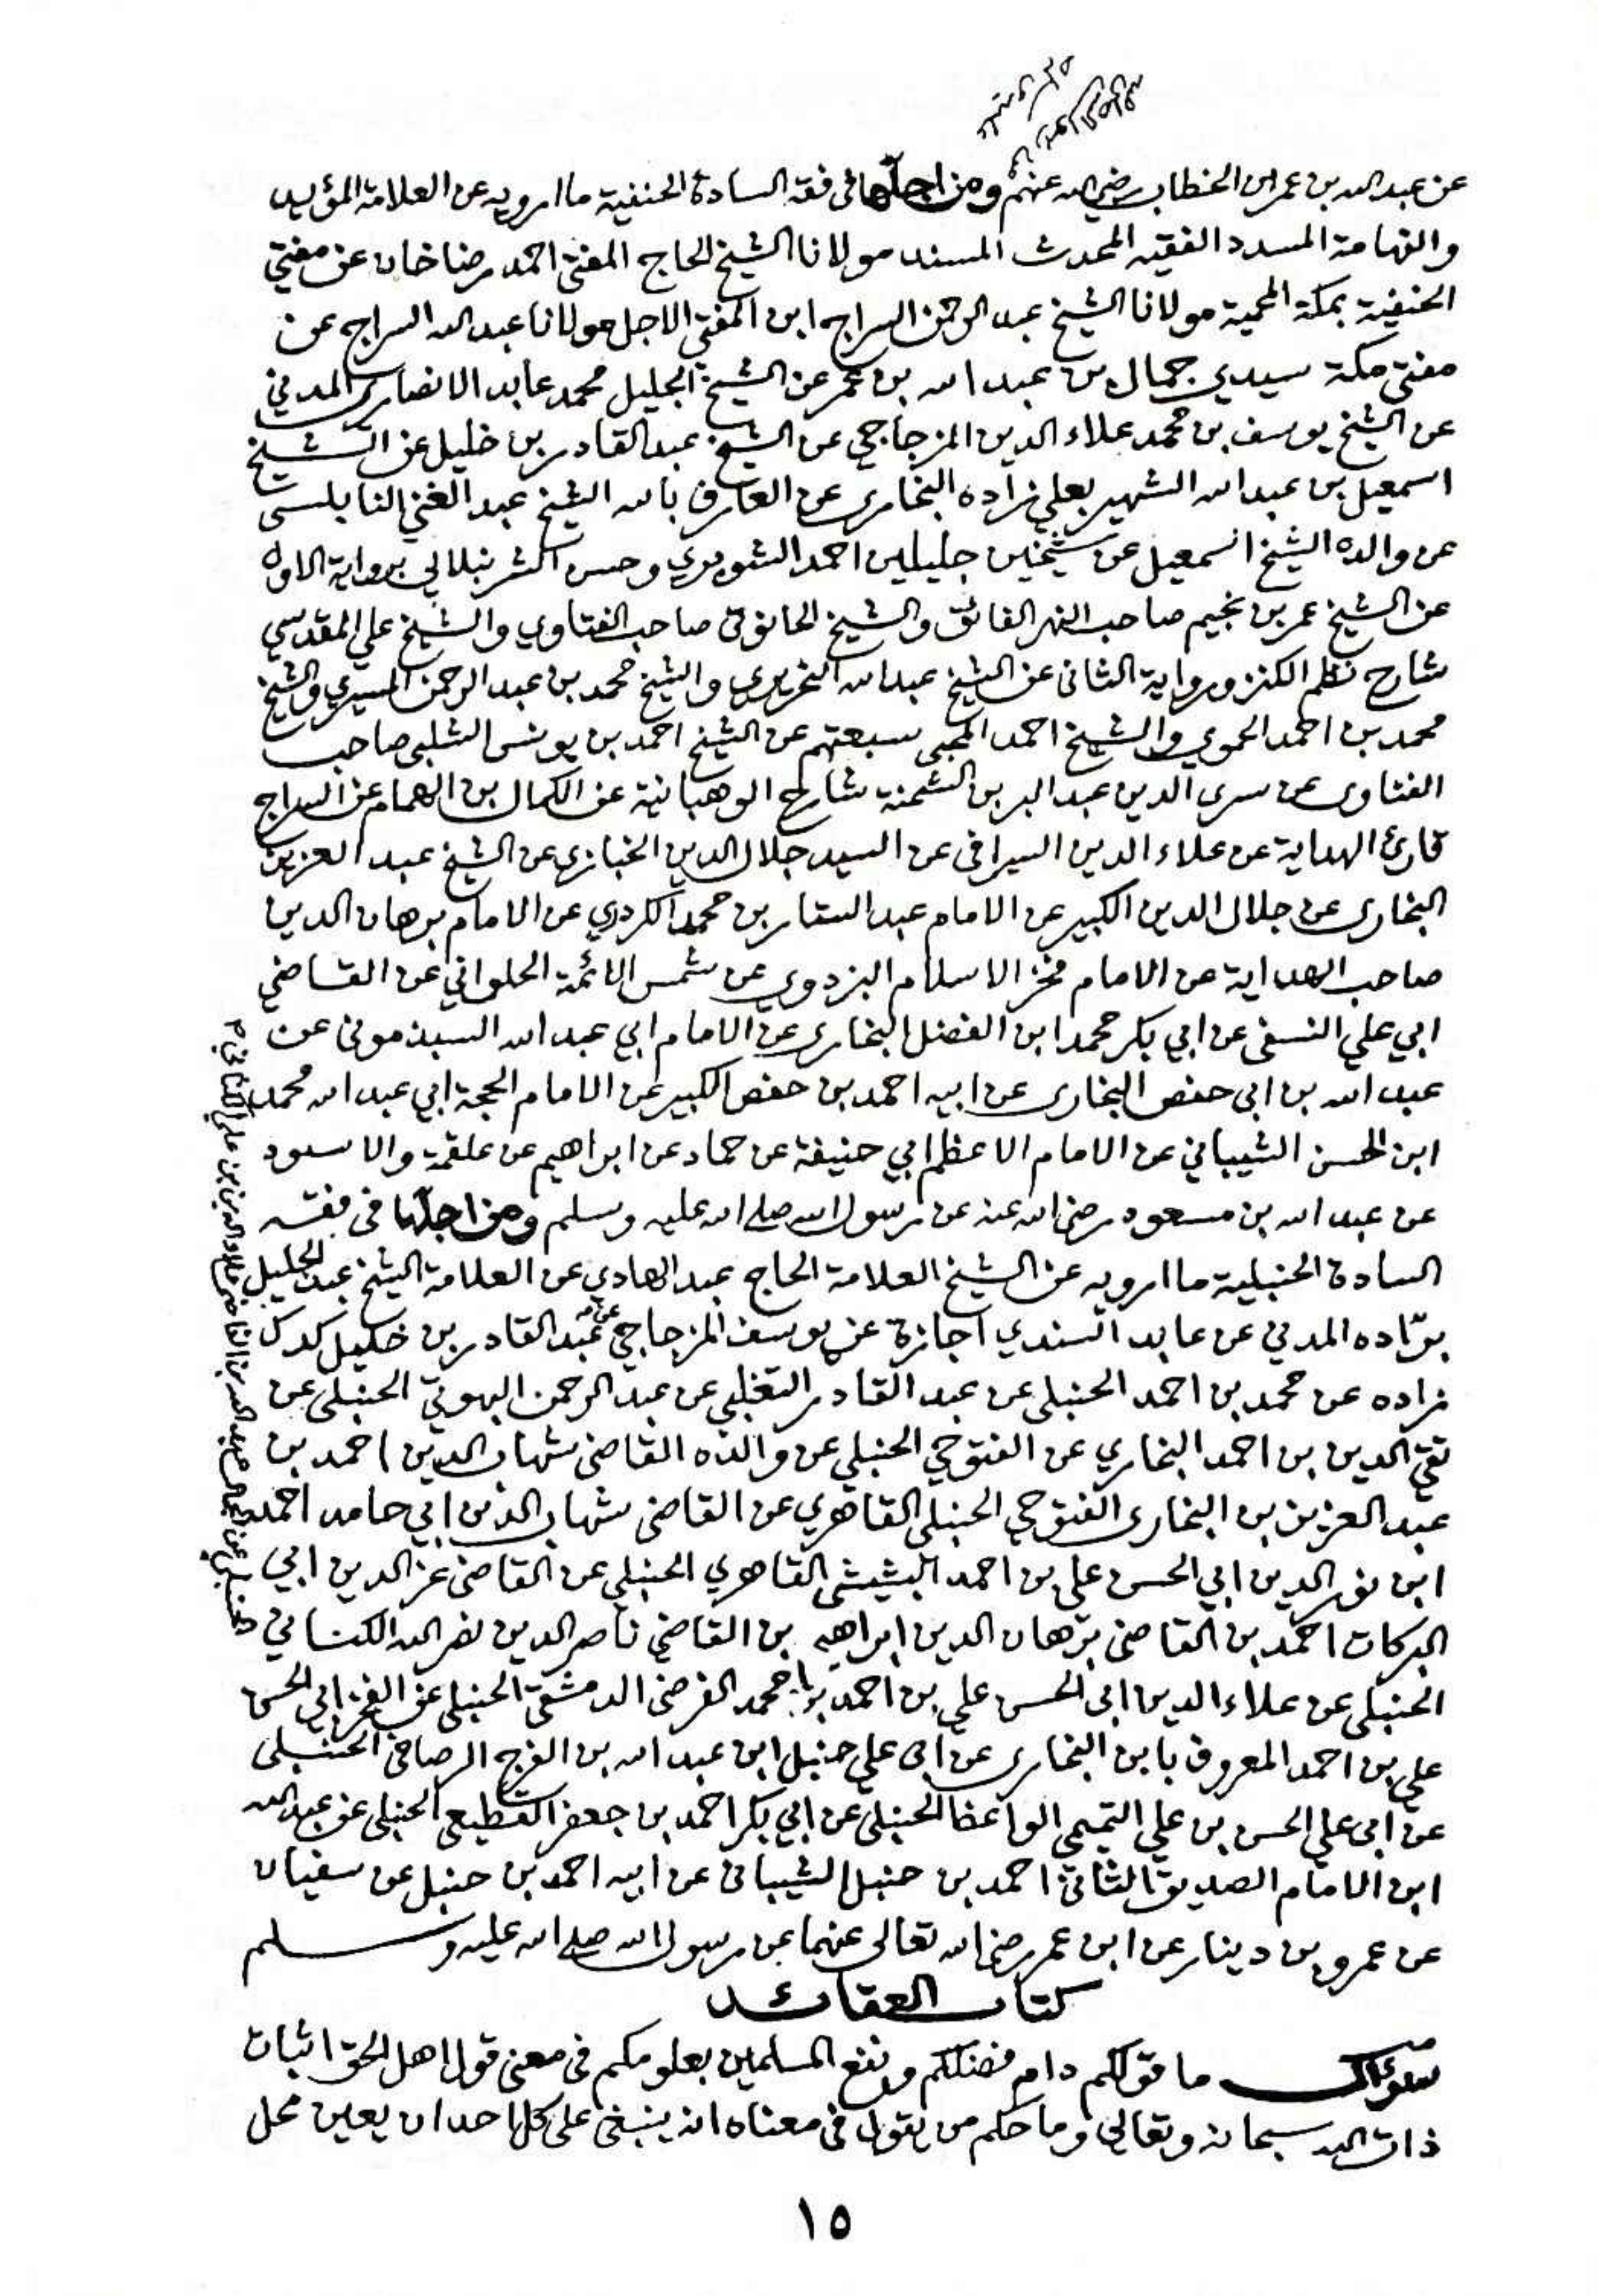 عن عبد الله بن عمر ابن الخطاب رضي الله عنهم ومن اجلّها فى فقه السادة الحنفية ما ارويه عن العلامة المؤيد
والفهامة المسدد الفقيه المحدث المسند مولانا الشيخ الحاج المفتى احمد رضا خان عن مفتي
الحنفية بمكة المحمية مولانا الشيخ عبد الرحمن السراج ابن المفتي الاجل مولانا عبد الله السراج عن
مفتى مكة سيدي جمال بن عبد الله بن عمر عن الشيخ الجليل محمد عابد الانصارى المدني
عن الشيخ يوسف بن محمد علاء الدين المزجاجي عن الشيخ عبد القادر بن خليل عن الشيخ
اسمعيل بن عبد الله الشهير بعلي زاده البخارى عن العارف بالله الشيخ عبد الغني النابلسى
عن والده الشيخ اسمعيل عن شيخين جليلين احمد الشوبري وحسن الشرنبلالي برواية الاول
عن الشيخ عمر بن نجيم صاحب النهر الفائق والشيخ الحانوتى صاحب الفتاوي والشيخ علي المقدسي
شارح نظم الكنز ورواية الثانى عن الشيخ عبد الله النحريرى والشيخ محمد بن عبد الرحمن المسيري والشيخ
محمد بن احمد الحموي والشيخ احمد المحبى سبعتهم عن الشيخ احمد بن يونس الشلبى صاحب
الفتاوى عن سرى الدين عبد البر بن الشحنة شارح الوهبانية عن الكمال بن الهمام عن السراج
قارئ الهداية عن علاء الدين السيرافى عن السيد جلال الدين الخبازى عن الشيخ عبد العزيز
البخارى عن جلال الدين الكبير عن الامام عبد الستار بن محمد الكردري عن الامام برهان الدين
صاحب الهداية عن الامام فخر الاسلام البزدوي عن شمس الائمة الحلواني عن القاضي
ابي علي النسفى عن ابي بكر محمد ابن الفضل البخارى عن الامام ابي عبد الله السبذمونى عن
عبد الله بن ابى حفص البخارى عن ابيه احمد بن حفص الكبير عن الامام الحجة ابي عبد الله محمد
ابن الحسن الشيباني عن الامام الاعظم ابي حنيفة عن حماد عن ابراهيم عن علقمة والاسود
عن عبد الله بن مسعود رضى الله عنه عن رسول الله صلى الله عليه وسلم ومن اجلّها فى فقه
السادة الحنبلية ما ارويه عن الشيخ العلامة الحاج عبد الهادي عن العلامة الشيخ عبد الجليل
برّاده المدني عن عابد السندي اجازة عن يوسف المزجاجي عن عبد القادر بن خليل كدك
زاده عن محمد بن احمد الحنبلى عن عبد القادر التغلبي عن عبد الرحمن البهوتي الحنبلى عن
تقي الدين بن احمد البخاري عن الفتوحي الحنبلي عن والده القاضى شهاب الدين احمد بن
عبد العزيز بن البخارى الفتوحي الحنبلى القاهري عن القاضى شهاب الدين ابي حامد احمد
ابن نور الدين ابي الحسن على بن احمد البشيشى القاهري الحنبلي عن القاضى عز الدين ابي
البركات احمد بن القاضى برهان الدين ابراهيم بن القاضي ناصر الدين نصر الله الكناني
الحنبلى عن علاء الدين ابى الحسن علي بن احمد محمد الفرضى الدمشقى الحنبلى عن الفخر ابي الحسن
علي بن احمد المعروف بابن البخارى عن ابى علي حنبل ابن عبد الله بن الفرج الرصافى الحنبلى
عن ابى علي الحسن بن علي التميمي الواعظ الحنبلى عن ابي بكر احمد بن جعفر القطيعى الحنبلى عن عبد الله
ابن الامام الصديق الثانى احمد بن حنبل الشيبانى عن ابيه احمد بن حنبل عن سفيان
عن عمرو بن دينار عن ابن عمر رضى الله تعالى عنهما عن رسول الله صلى الله عليه وسلم
كتاب العقائد
سؤال ما قولكم دام فضلكم ونفع المسلمين بعلومكم فى معنى قول اهل الحق اثبات
ذات الله سبحانه وتعالى وما حكم من يقول فى معناه انه ينبغى على كل احد ان يعين محل
١٥